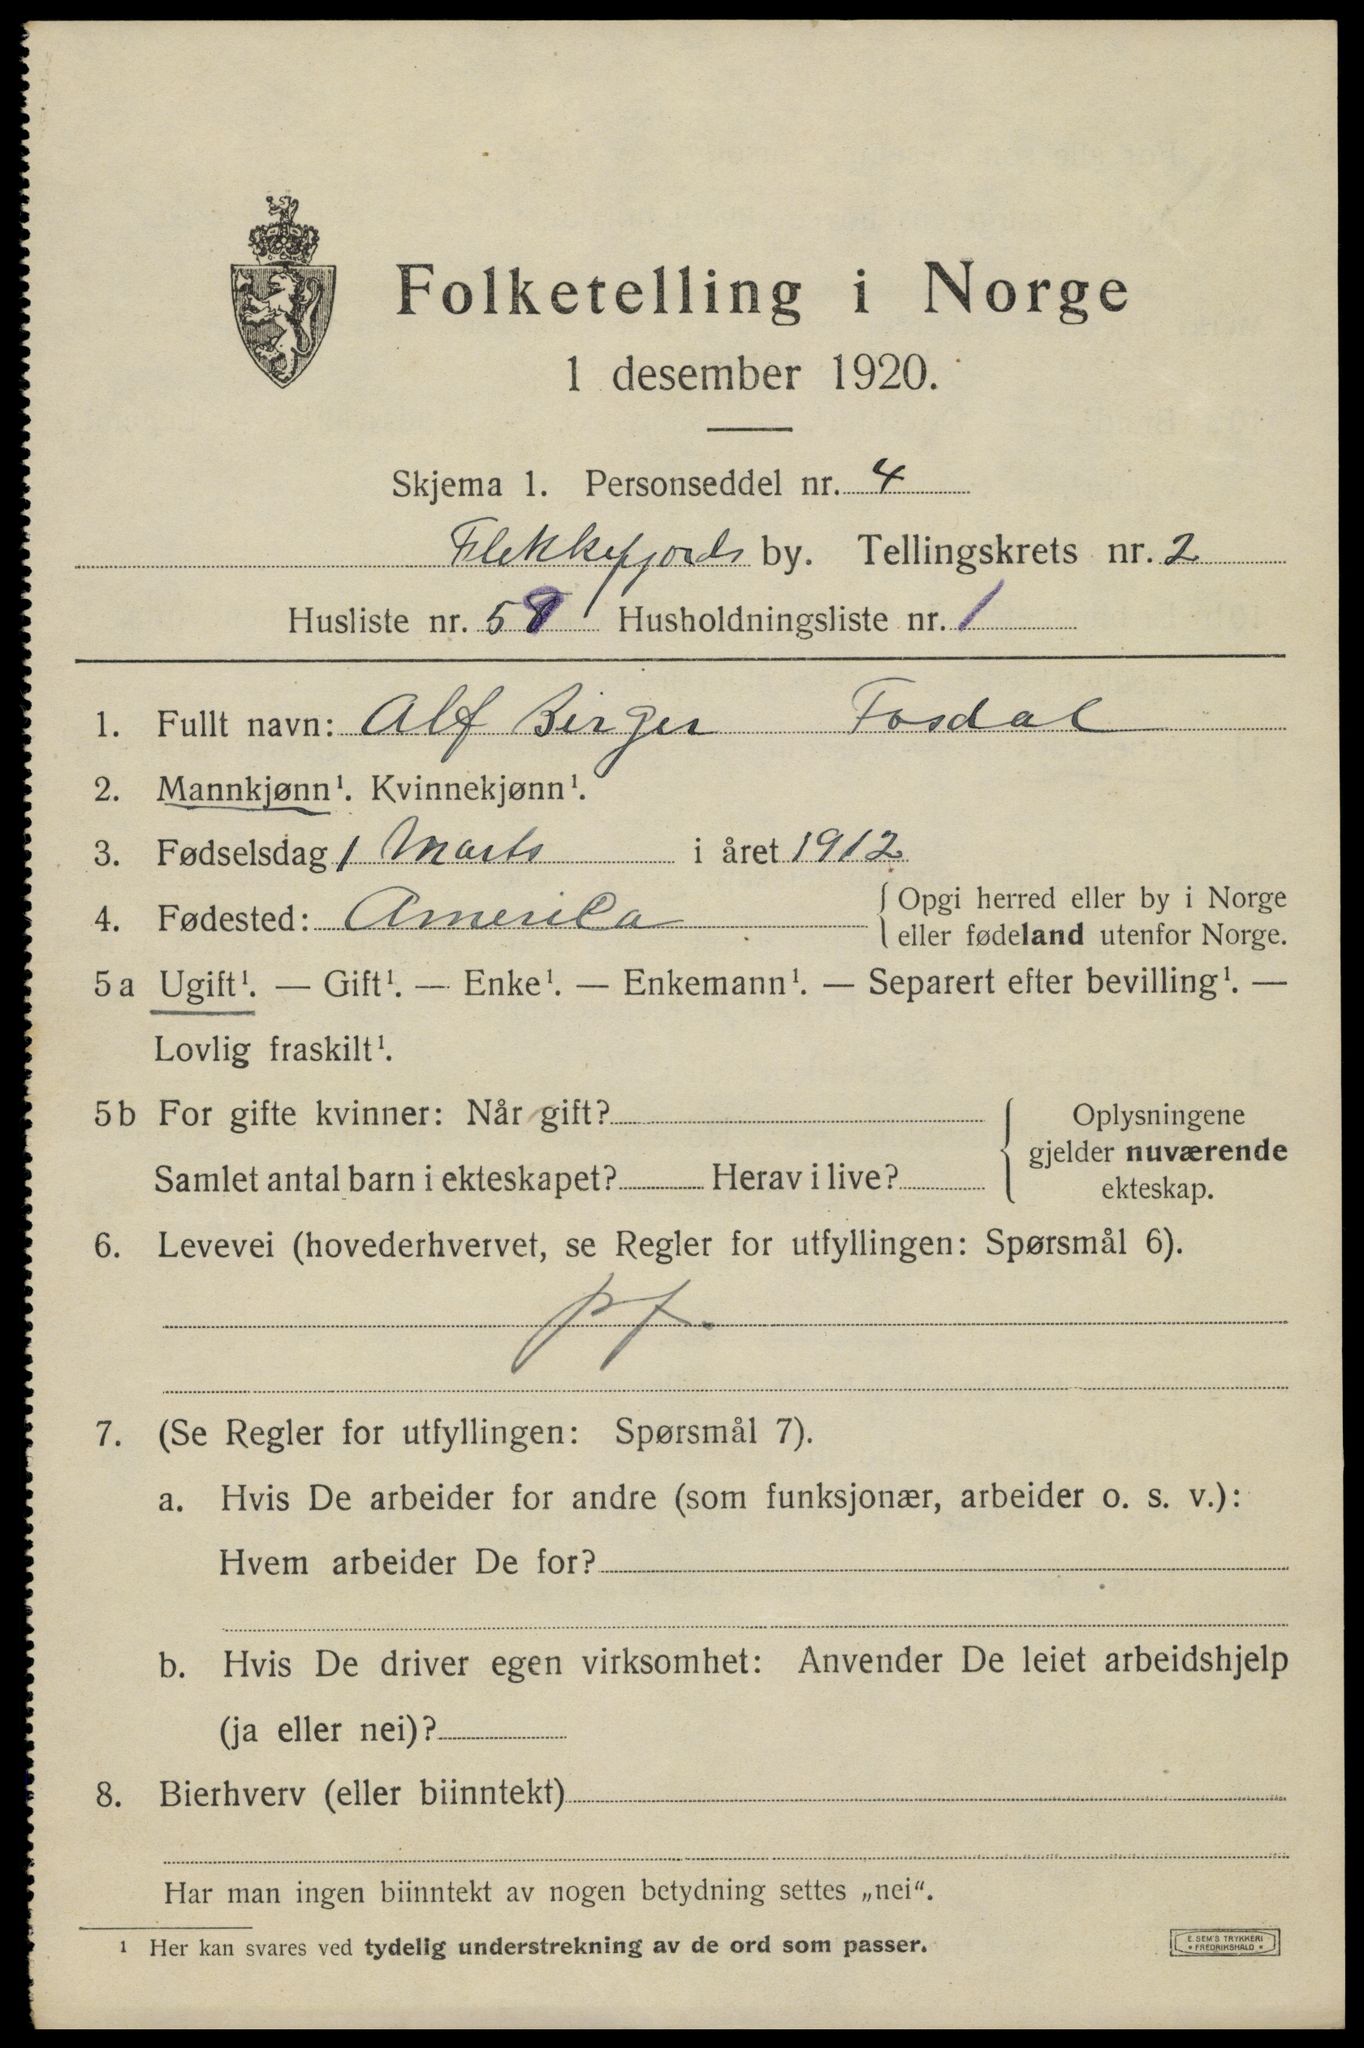 Folketelling i Norge
1 desember 1920.
Skjema 1. Personseddel nr. 4
Flekkefjords by. Tellingskrets nr. 2
Husliste nr. 58 Husholdningsliste nr. 1
1. Fullt navn: Alf Birger Fosdal
2. Mannkjønn¹. Kvinnekjønn¹.
3. Fødselsdag 1 Marts i året 1912
4. Fødested: Amerika { Opgi herred eller by i Norge
eller fødeland utenfor Norge.
5a Ugift¹. — Gift¹. — Enke¹. — Enkemann¹. — Separert efter bevilling¹. —
Lovlig fraskilt¹.
5b For gifte kvinner: Når gift? { Oplysningene
gjelder nuværende
Samlet antal barn i ekteskapet? Herav i live? ekteskap.
6. Levevei (hovederhvervet, se Regler for utfyllingen: Spørsmål 6).
pf.
7. (Se Regler for utfyllingen: Spørsmål 7).
a. Hvis De arbeider for andre (som funksjonær, arbeider o. s. v.):
Hvem arbeider De for?
b. Hvis De driver egen virksomhet: Anvender De leiet arbeidshjelp
(ja eller nei)?
8. Bierhverv (eller biinntekt)
Har man ingen biinntekt av nogen betydning settes „nei“.
¹ Her kan svares ved tydelig understrekning av de ord som passer.
E. SEM'S TRYKKERI
• FREDRIKSHALD •